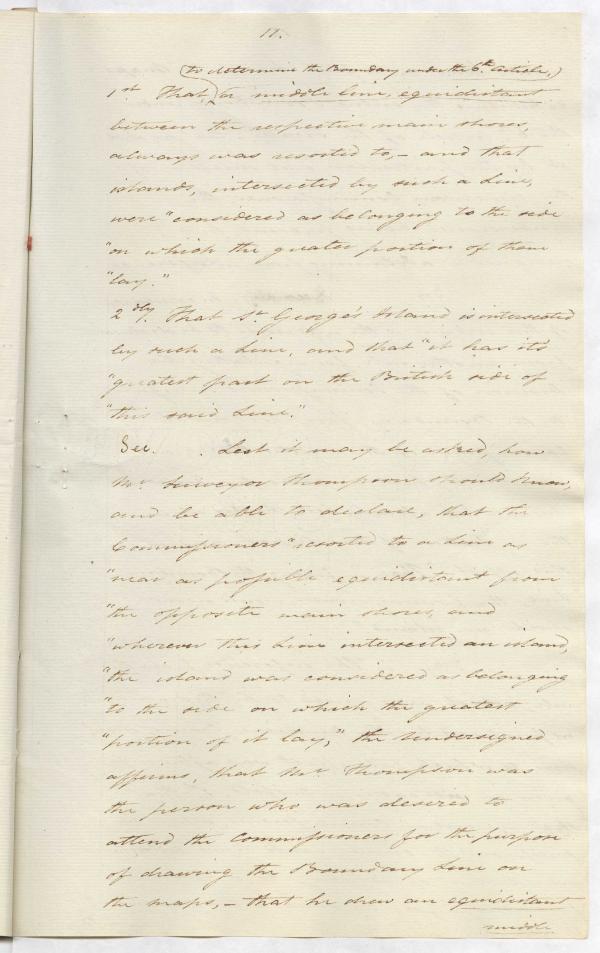 11.
(to determine the Boundary under the 6th. Article,)
1st. That, (a middle line, equidistant
between the respective main shores,
always was resorted to, – and that
islands, intersected by such a Line,
were "considered as belonging to the side
"on which the greater portion of them
"lay."
2dly. That St. George's Island is intersected
by such a Line, and that "it has it's
"greatest part on the British side of
"this said Line."
Sec. . Lest it may be asked, how
Mr. Surveyor Thompson should know,
and be able to declare, that the
Commissioners "resorted to a Line as
"near as possible equidistant from
"the opposite main shores, and
"wherever this Line intersected an island,
"the island was considered as belonging
"to the side on which the greatest
"portion of it lay," the Undersigned
affirms, that Mr. Thompson was
the person who was desired to
attend the Commissioners for the purpose
of drawing the Boundary Line on
the maps, – that he drew an equidistant
middle